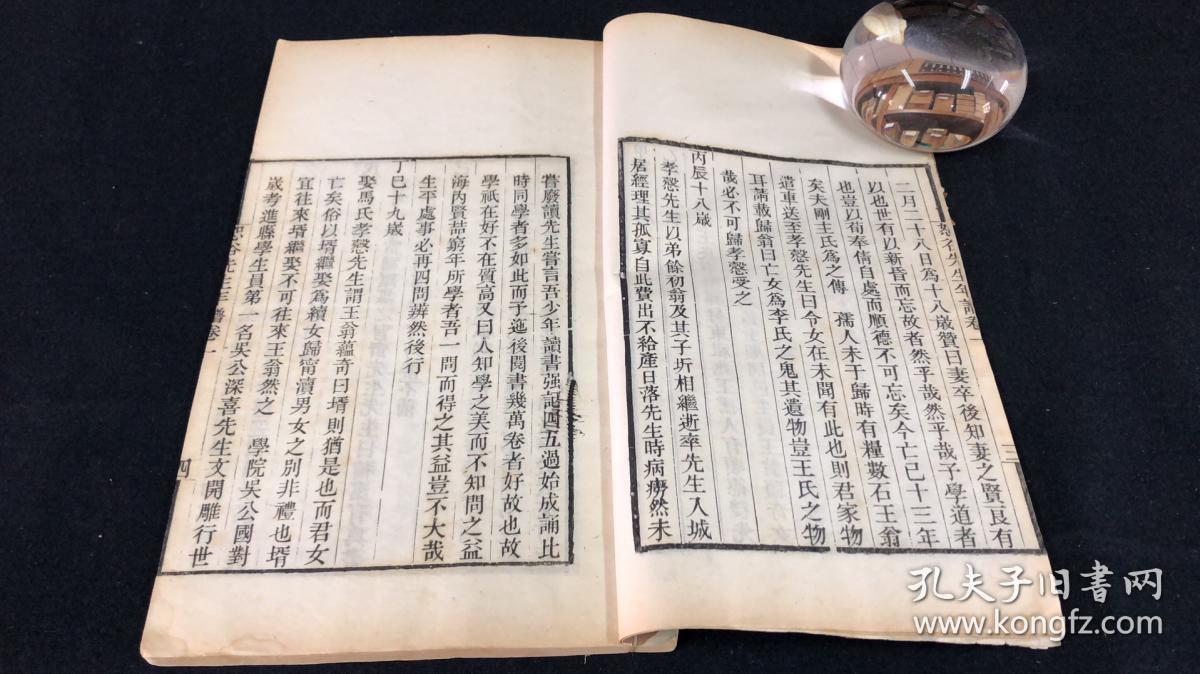 二月二十八日為十八歲贊曰妻卒後知妻之賢良有
以也世有以新昏而忘故者然乎哉然乎哉子學道者
也豈以荀奉倩自處而順德不可忘矣今亡已十三年
矣夫剛主氏為之傳 孺人未于歸時有糧數石王翁
遣車送至孝慤先生曰令女在未聞有此也則君家物
耳請載歸翁曰亡女為李氏之鬼其遺物豈王氏之物
哉必不可歸孝慤受之
丙辰十八歲
孝慤先生以弟餘初翁及其子圻相繼逝率先生入城
居經理其孤寡自此費出不給產日落先生時病瘠然未
嘗廢讀先生嘗言吾少年讀書强記四五過始成誦比
時同學者多如此而予迤後閱書幾萬卷者好故也故
學祇在好不在質高又曰人知學之美而不知問之益
海內賢喆窮年所學者吾一問而得之其益豈不大哉
生平處事必再四問辨然後行
丁巳十九歲
娶馬氏孝慤先生謂王翁蘊奇曰壻則猶是也而君女
亡矣俗以壻繼娶為續女歸甯瀆男女之別非禮也壻
宜往來壻繼娶不可往來王翁然之 學院吳公國對
歲考進縣學生員第一名吳公深喜先生文開雕行世
恕谷先生年譜卷一
三
恕谷先生年譜卷一
四
孔夫子旧书网
www.kongfz.com